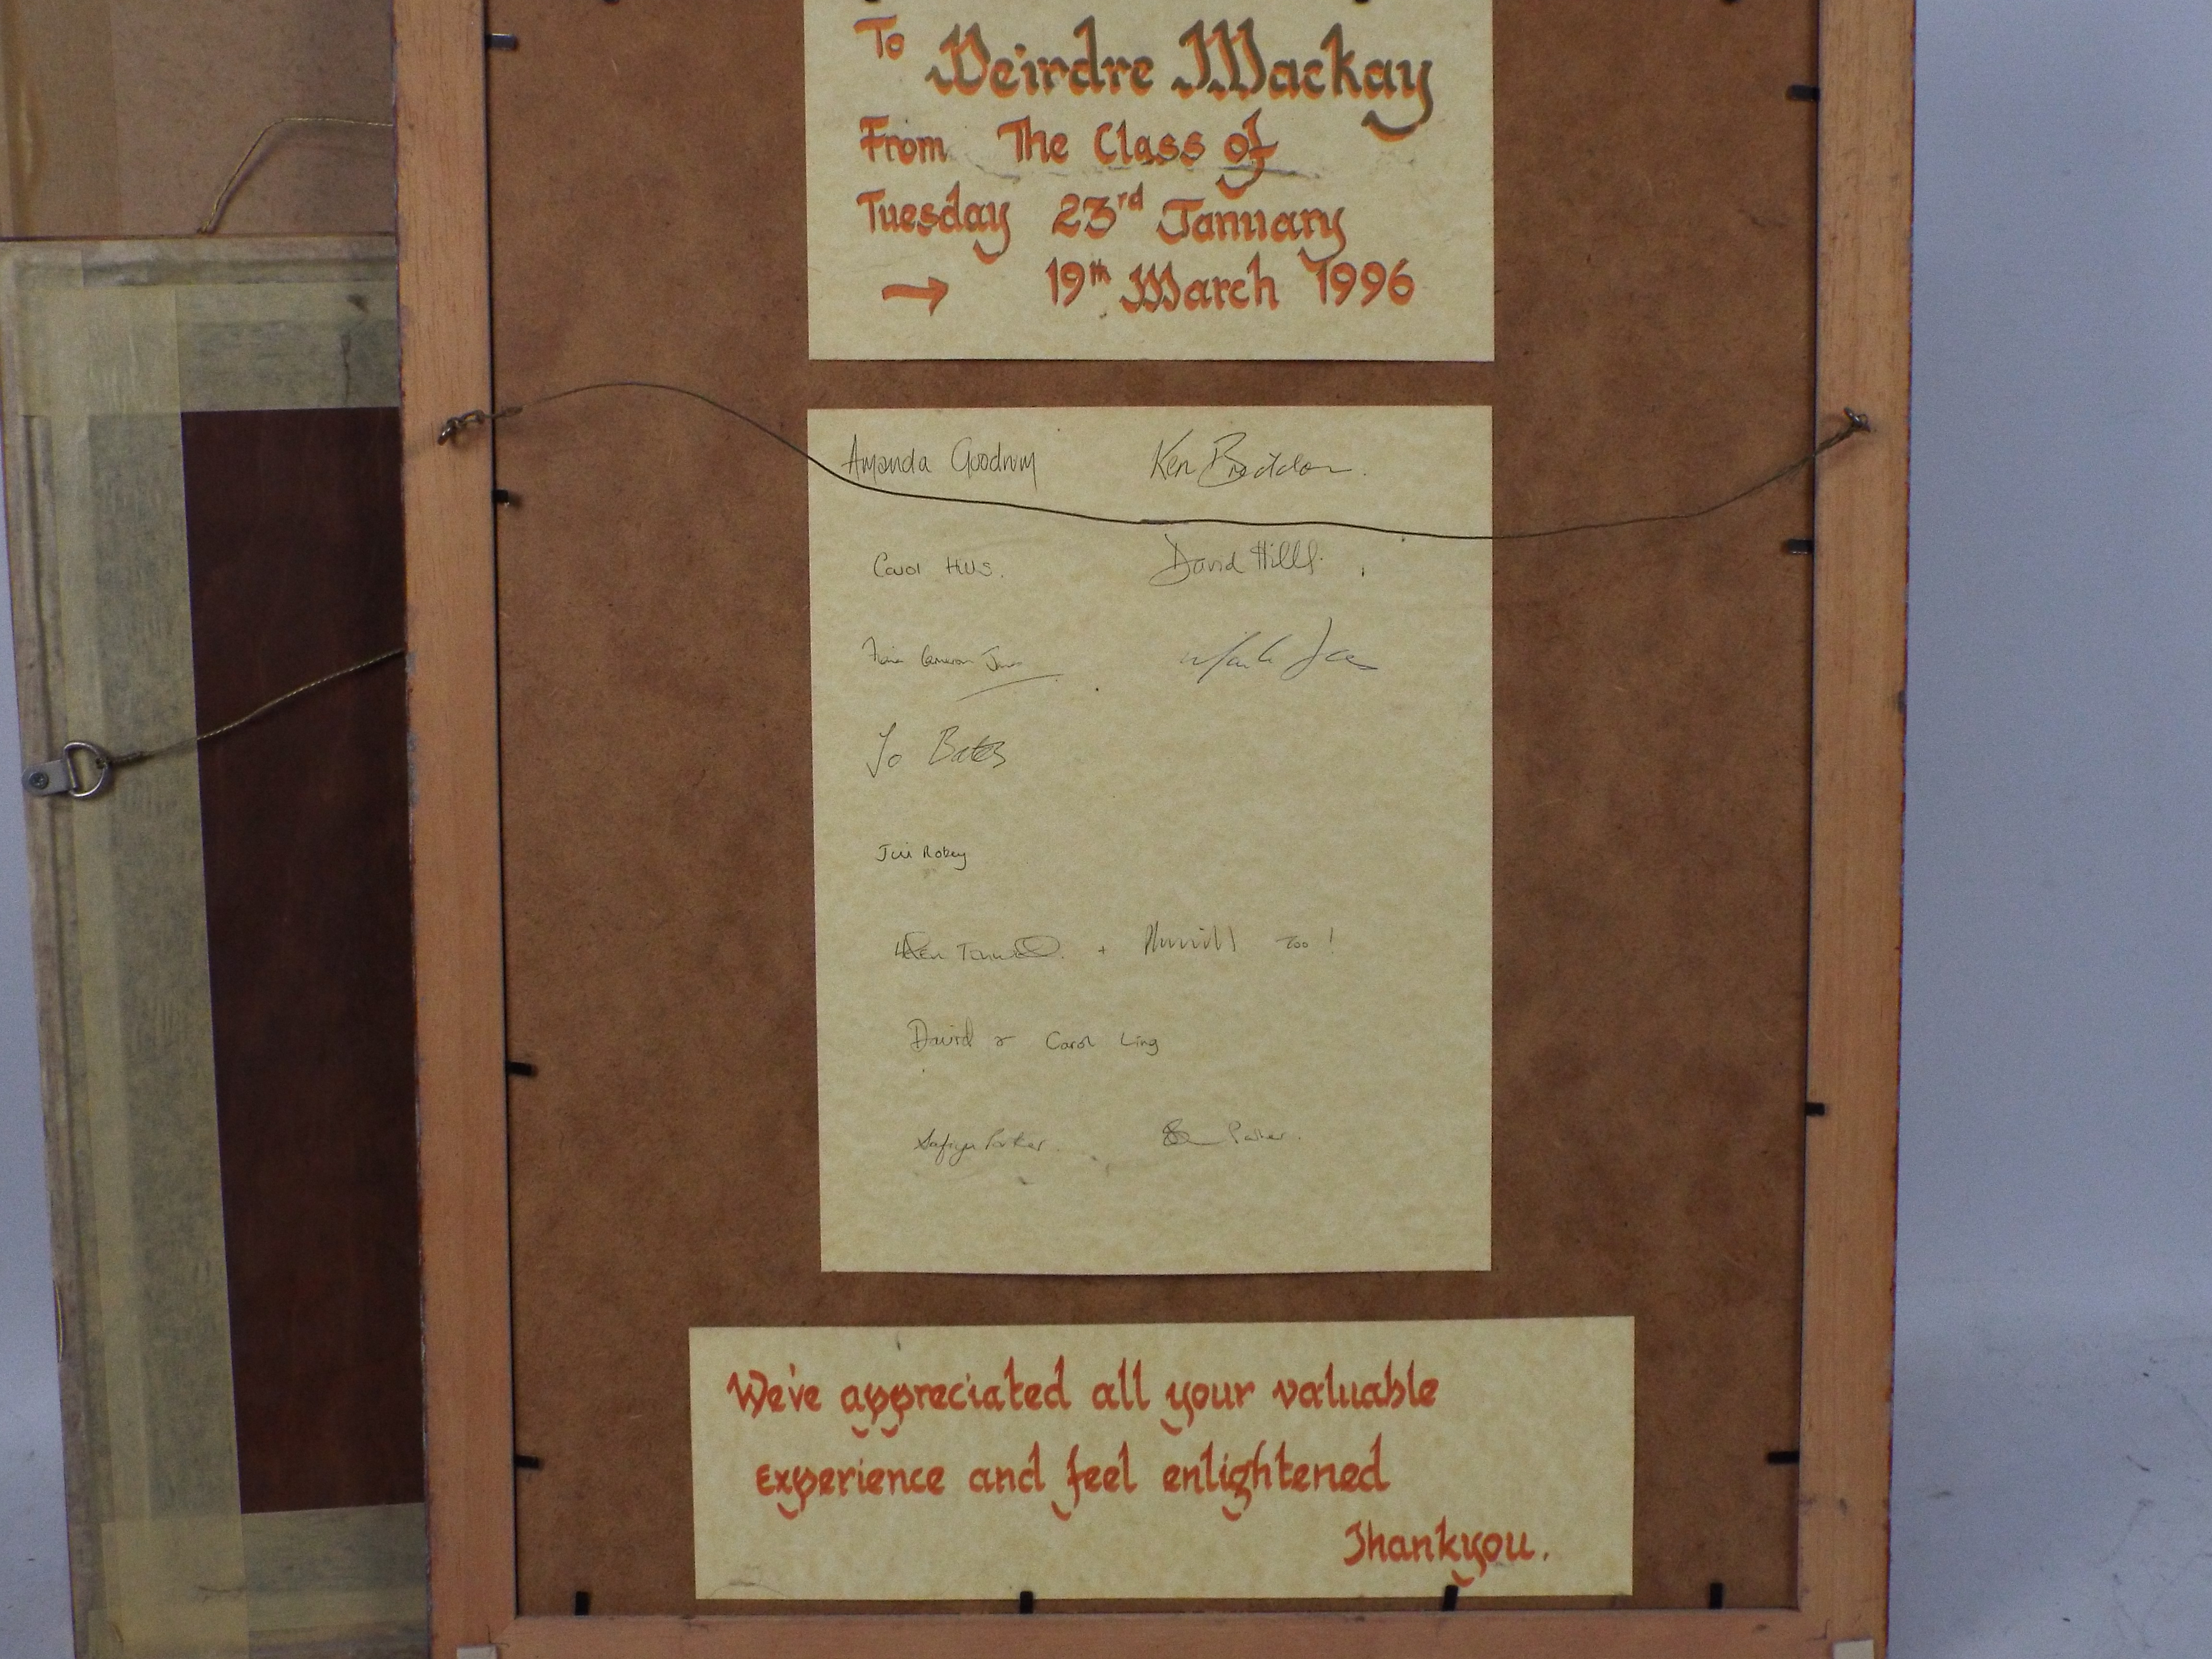 To Deirdre Mackay
From The Class of
Tuesday 23rd January
→ 19th March 1996
Amanda Goodrum Ken
Carol Hills. David Hills.
Cameron Jones
Jo Bates
Robey
Ken + too!
David & Carol Ling
Safiya Parker Parker.
We've appreciated all your valuable
experience and feel enlightened
Thankyou.